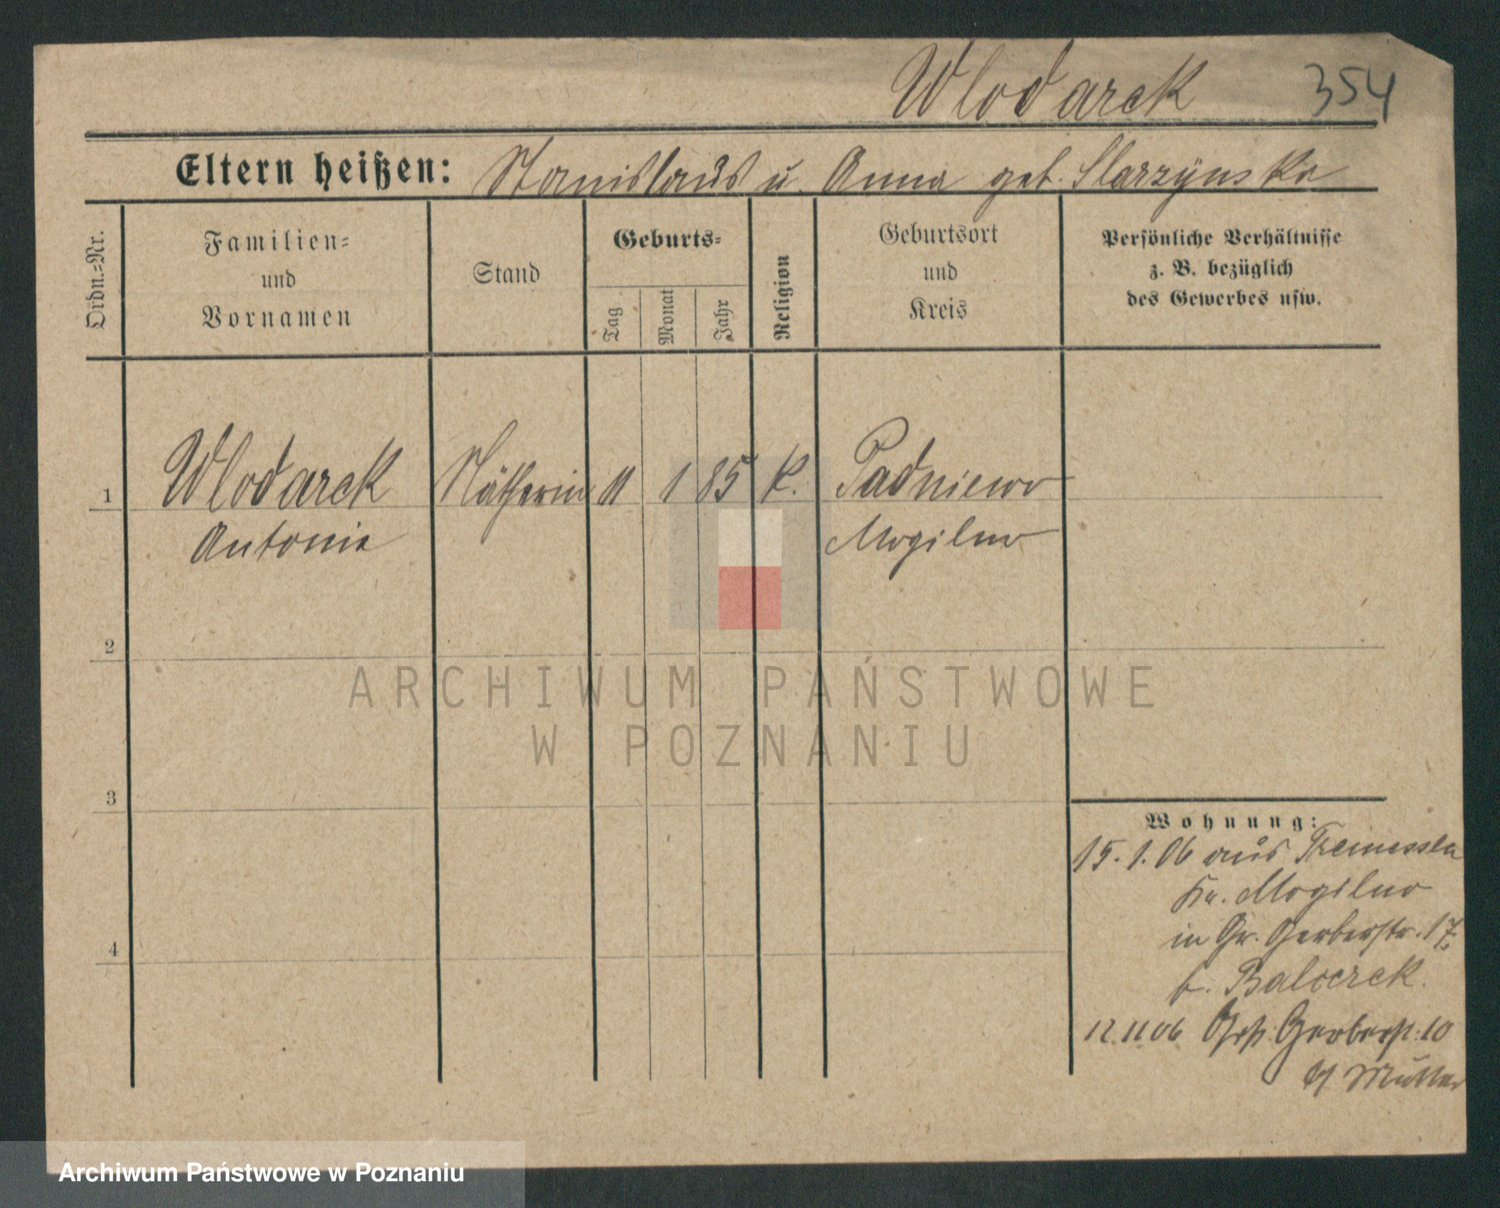 Wlodarek 354
Eltern heißen: Stanislaus u. Anna geb. Slarzÿnska
Ordn.=Nr.
Familien=
und
Vornamen
Stand
Geburts=
Tag
Monat
Jahr
Religion
Geburtsort
und
Kreis
Persönliche Verhältnisse
z. B. bezüglich
des Gewerbes usw.
1 Wlodarek Nätherin 11 1 85 K. Padniewo
Antonie Mogilno
2
3
4
Wohnung:
15. 1. 06 aus Tremessen
Kr. Mogilno
in Gr. Gerberstr. 17.
b. Balcerek.
12. 11 06 Gerberstr. 10
b/ Mutter
ARCHIWUM PAŃSTWOWE
W POZNANIU
Archiwum Państwowe w Poznaniu